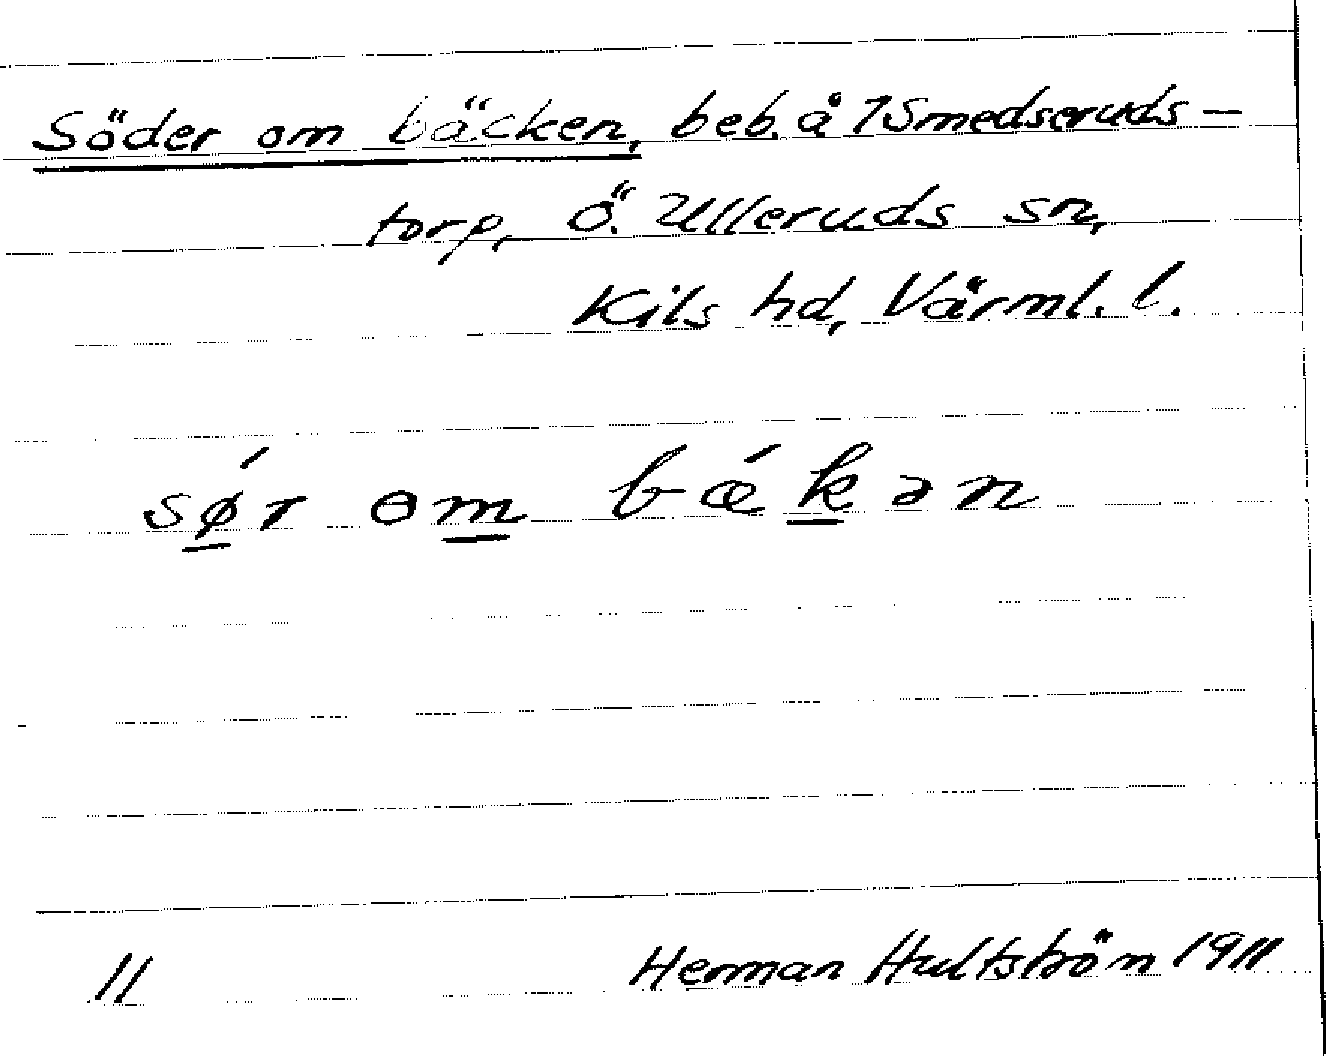 Söder om bäcken, beb. å 1 Smedseruds-
torp, Ö. Ulleruds sn,
Kils hd, Värml. l.
sǿr om bǽkən
11 Herman Hultström 1911